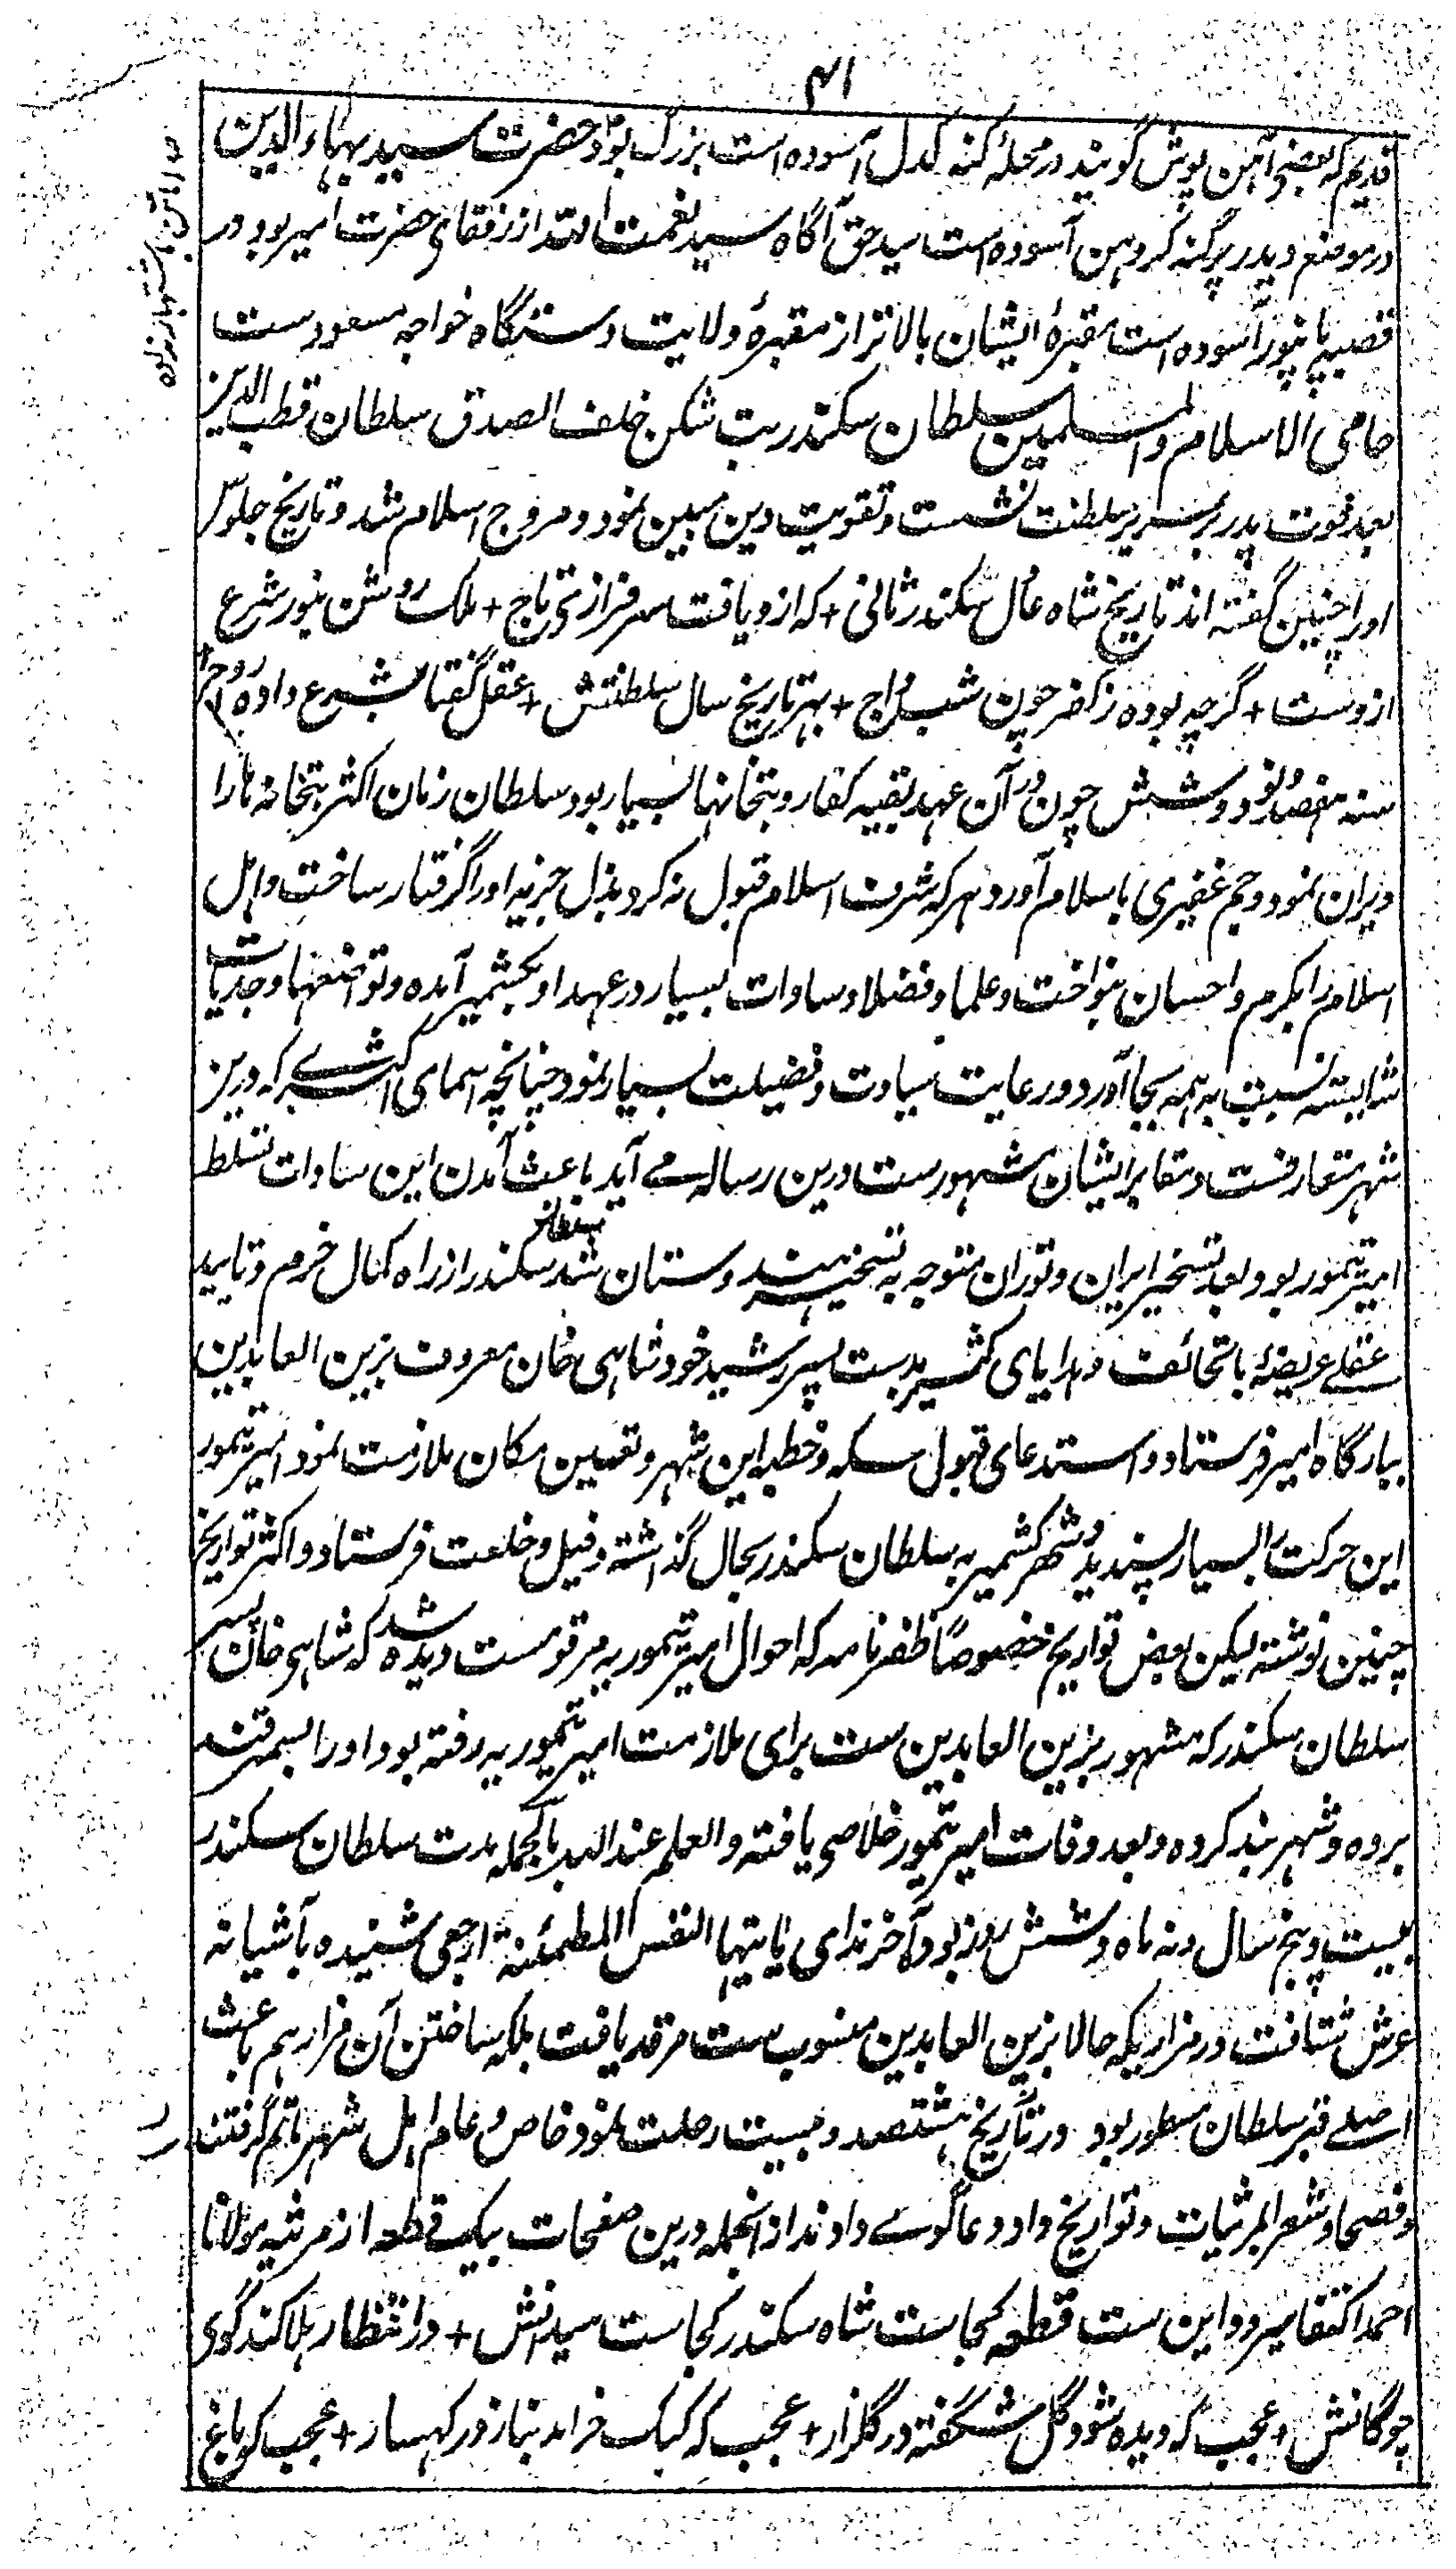 ۴۱
قدیم که بعضی آهن پوش گویند در محلهٔ کنه کدل آسوده است بزرگ بود حضرت سید بهاء الدین
در موضع دیدر پرگنه کروهن آسوده است سید حق آگاه سید نعمت الله از رفقای حضرت امیر بود در
قصبه پانپور آسوده است مقبرهٔ ایشان بالاتر از مقبرهٔ ولایت دستگاه خواجه مسعودست
حامی الاسلام والمسلمین سلطان سکندر بت شکن خلف الصدق سلطان قطب الدین
بعد فوت پدر بر سریر سلطنت نشست و تقویت دین مبین نمود و مروج اسلام شد و تاریخ جلوس
او را چنین گفته اند تاریخ شاه عادل سکندر ثانی + که ازو یافت سرفرازی تاج + ملک روشن بنور شرع
ازوست + گرچه بوده ز کفر چون شب داج + بهر تاریخ سال سلطنتش + عقل گفتا شرع داده رواج
سنه هفصد و نود و شش چون در آن عهد بقیه کفار و بتخانها بسیار بود سلطان زمان اکثر بتخانه ها را
ویران نمود و جم غفیری باسلام آورد و هر که شرف اسلام قبول نه کرد بذل جزیه او را گرفتار ساخت و اهل
اسلام را بکرم و احسان بنواخت و علما و فضلا و سادات بسیار در عهد او بکشمیر آمده و تواضعها و خدمات
شایسته نسبت به همه بجا آورد و رعایت سیادت و فضیلت بسیار نمود چنانچه اسمای اکثرے که درین
شهر متعارفست و مقابر ایشان مشهورست درین رساله مے آید باعث آمدن این سادات تسلط
امیر تیمور بود و بعد تسخیر ایران و توران متوجه به تسخیر هندوستان شد سلطان سکندر از راه کمال خرم و تایید
عقلے عریضهٔ با تحائف و هدایای کشمیر بدست پسر رشید خود شاهی خان معروف بزین العابدین
ببارگاه امیر فرستاد و استدعای قبول سکه و خطبه این شهر و تعیین مکان ملازمت نمود امیر تیمور
این حرکت را بسیار پسندید و شهر کشمیر به سلطان سکندر بحال گذاشته و فیل و خلعت فرستاد و اکثر تواریخ
چنین نوشته لیکن بعض تواریخ خصوصاً ظفرنامه که احوال امیر تیموریه مرقومست دیده شد که شاهی خان پسر
سلطان سکندر که مشهور بزین العابدین ست برای ملازمت امیر تیموریه رفته بود او را بسمرقند
برده و شهربند کرده و بعد وفات امیر تیمور خلاصی یافته والعلم عند الله بالجمله مدت سلطان سکندر
بیست و پنج سال و نه ماه و شش روز بود آخر ندای یا ایتها النفس المطمئنة ارجعی شنیده بآشیانه
عرش شتافت و در مزاریکه حالا بزین العابدین منسوب ست مرقد یافت بلکه ساختن آن مزار هم باعث
اصلے قبر سلطان مسطور بود و در تاریخ هشتصد و بیست رحلت نمود خاص و عام اهل شهر ماتم گرفتند
و فصحا و شعرا مرثیات و تواریخ داد دعاگوئے دادند از انجمله درین صفحات بیک قطعه از مرثیه مولانا
احمد اکتفا میرود این ست قطعه کجاست شاه سکندر کجاست میدانش + در انتظار هلاکند گوی
چوگانش + عجب که دیده شود گل شگفته در گلزار + عجب که کبک خرامد بناز در کهسار + عجب که باغ